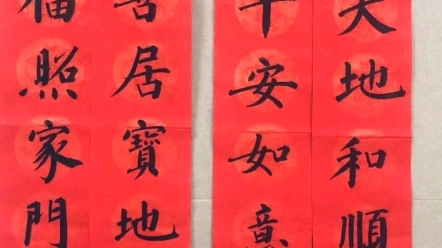 天地和順
平安如意
喜居寶地
福照家門